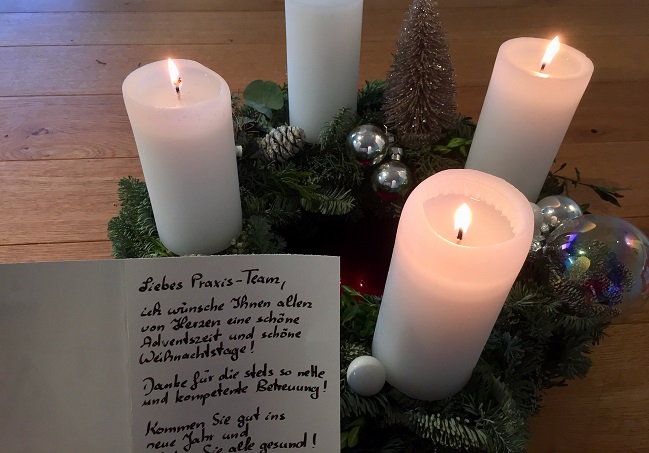 Liebes Praxis-Team,
ich wünsche Ihnen allen
von Herzen eine schöne
Adventszeit und schöne
Weihnachtstage!
Danke für die stets so nette
und kompetente Betreuung!
Kommen Sie gut ins
neue Jahr und
Sie alle gesund!